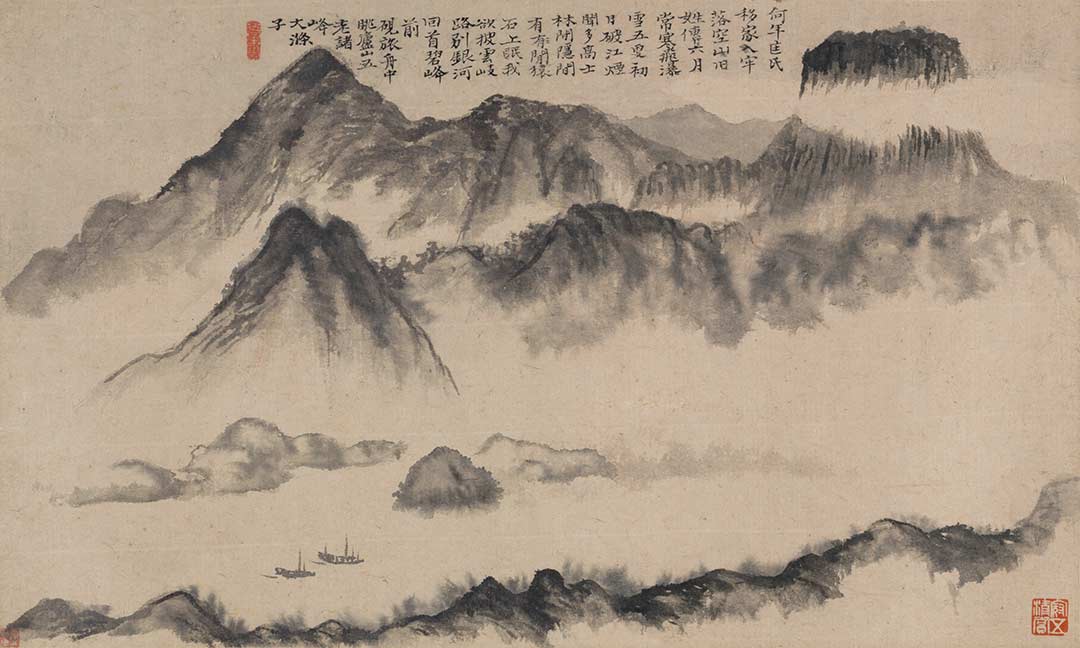 何年匡氏
移家入牢
落空山旧
姓傳六月
常寒飛瀑
雪五更初
日破江煙
聞多高士
林閒隱閒
有有閒猿
石上眠我
欲披雲岐
路別銀河
回首碧峰
前
旅舟中
眺廬山五
老諸
峰
大滌
子